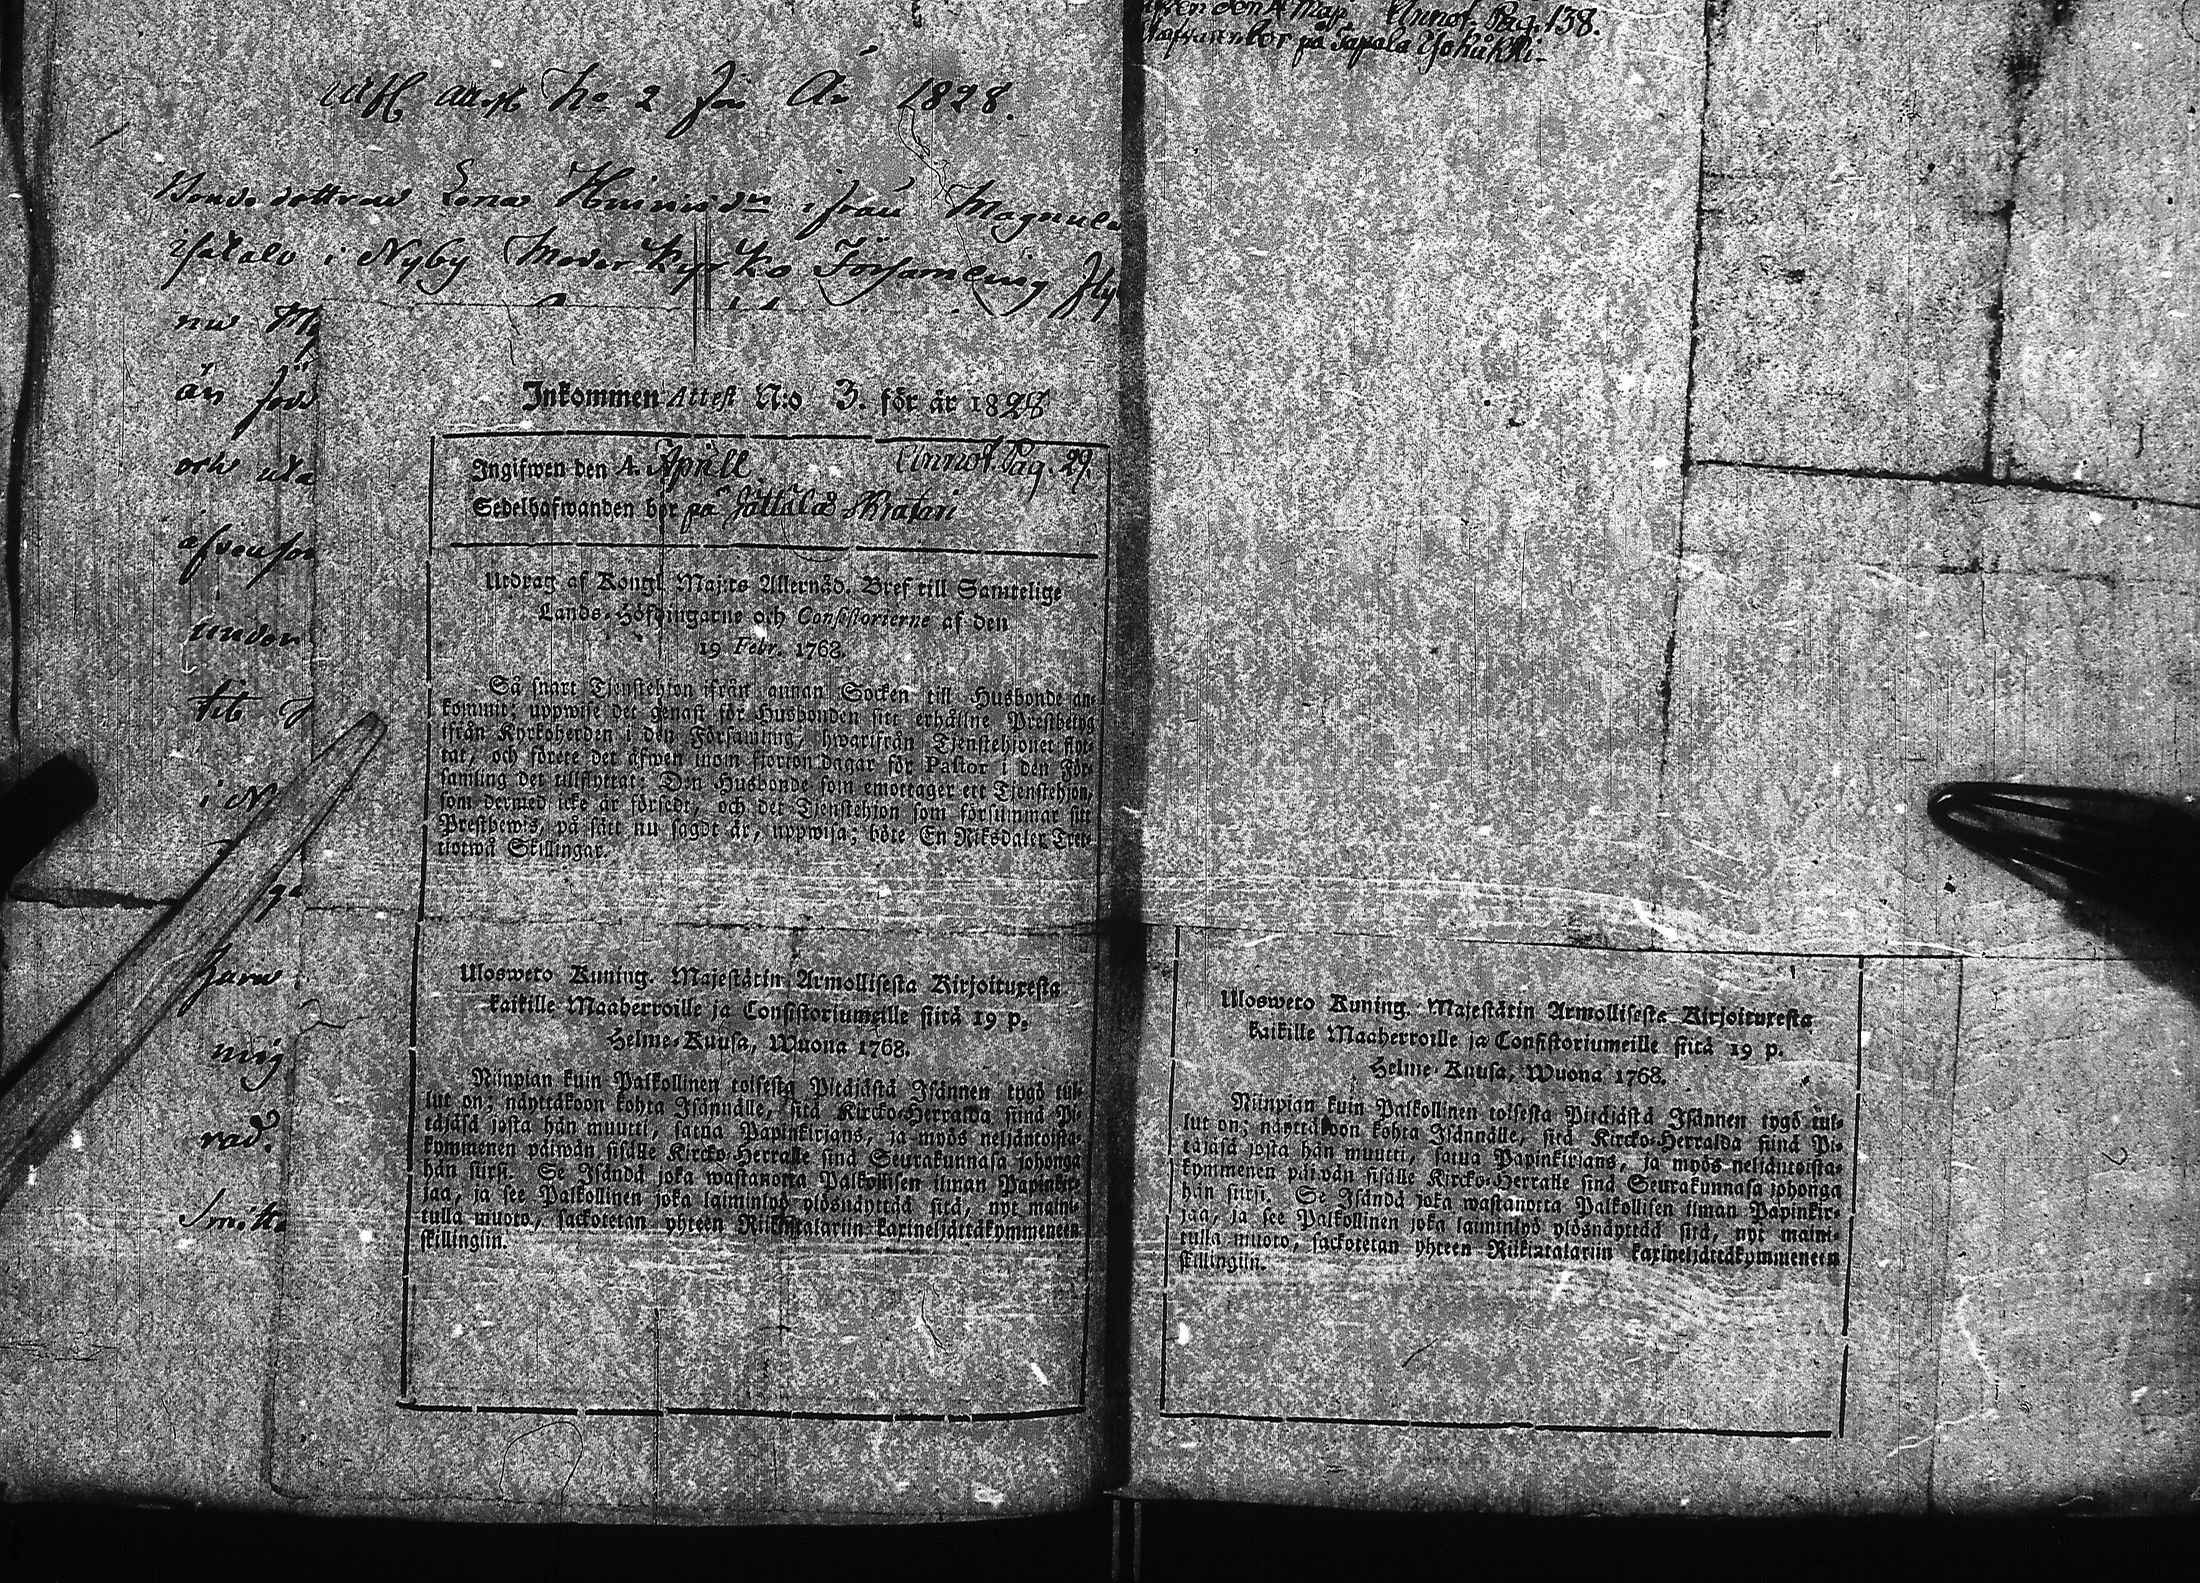 No 2 för År 1828.
Bondedottren Lena ifrån
i Nyby Moder Kyrko Församling
nu
än
och
äfven
under
i N
mig
rad.
Inkommen Attest N:o 3. för år 1828
Ingifwen den 4. Aprill Annot. Pag. 29.
Sedelhafwanden bor på
Utdrag af Kongl Maj:ts Allernåd. Bref till Samtelige
Lands-Höfdingarne och Consistorierne af den
19 Febr. 1768.
Så snart Tjenstehjon ifrån annan Socken till Husbonde an-
kommit; uppwise det genast för Husbonden sitt erhållne Prestbetyg
ifrån Kyrkoherden i den Församling, hwarifrån Tjenstehjonet flyt-
tat, och förete det äfwen inom fjorton dagar för Pastor i den För-
samling det tillflyttat: Den Husbonde som emottager ett Tjenstehjon,
som dermed icke är försedt, och det Tjenstehjon som försummar sitt
Prestbewis, på sätt nu sagdt är, uppwisa; böte En Riksdaler Tret-
tiotwå Skillingar.
Ulosweto Kuning. Majestätin Armollisesta Kirjoituxesta
kaikille Maaherroille ja Consistoriumeille siitä 19 p.
Helme-Kuusa, Wuona 1768.
Niinpian kuin Palkollinen toisesta Pitäjästä Isännen tygö tul-
lut on; näyttäkoon kohta Isännälle, sitä Kircko-Herralda siinä Pi-
täjäsä josta hän muutti, saatua Papinkirjans, ja myös neljäntoista-
kymmenen päiwän sisälle Kircko-Herralle siinä Seurakunnasa johonga
hän siirsi. Se Isändä joka wastanotta Palkollisen ilman Papinkir-
jaa, ja see Palkollinen joka laiminlyö ylösnäyttää sitä, nyt maini-
tulla muoto, sackotetan yhteen Riikintalariin kaxineljättäkymmeneen
skillingiin.
den 4 Maji Annot. Pag. 138.
bor på
Ulosweto Kuning. Majestätin Armollisesta Kirjoituxesta
kaikille Maaherroille ja Consistoriumeille siitä 19 p.
Helme-Kuusa, Wuona 1768.
Niinpian kuin Palkollinen toisesta Pitäjästä Isännen tygö tul-
lut on; näyttäkoon kohta Isännälle, sitä Kircko-Herralda siinä Pi-
täjäsä josta hän muutti, saatua Papinkirjans, ja myös neljäntoista-
kymmenen päiwän sisälle Kircko-Herralle siinä Seurakunnasa johonga
hän siirsi. Se Isändä joka wastanotta Palkollisen ilman Papinkir-
jaa, ja see Palkollinen joka laiminlyö ylösnäyttää sitä, nyt maini-
tulla muoto, sackotetan yhteen Riikintalariin kaxineljättäkymmeneen
skillingiin.